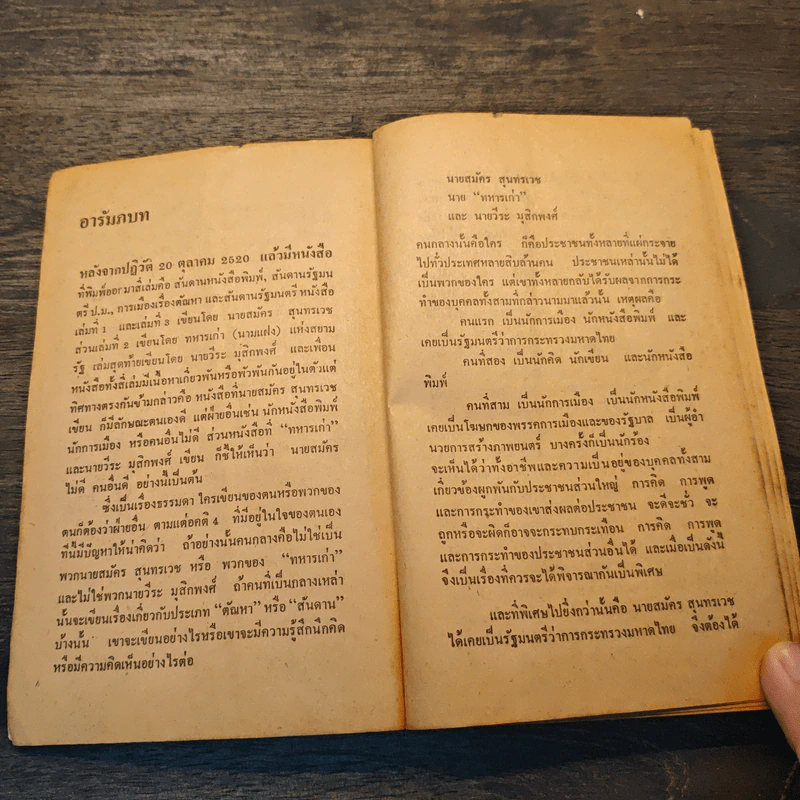 อารัมภบท
หลังจากปฏิวัติ 20 ตุลาคม 2520 แล้วมีหนังสือ
ที่พิมพ์ออกมาสี่เล่มคือ สันดานหนังสือพิมพ์, สันดานรัฐมน
ตรี ป.ม., การเมืองเรื่องตัณหา และสันดานรัฐมนตรี หนังสือ
เล่มที่ 1 และเล่มที่ 3 เขียนโดย นายสมัคร สุนทรเวช
ส่วนเล่มที่ 2 เขียนโดย ทหารเก่า (นามแฝง) แห่งสยาม
รัฐ เล่มสุดท้ายเขียนโดย นายวีระ มุสิกพงศ์ และเพื่อน
หนังสือทั้งสี่เล่มมีเนื้อหาเกี่ยวพันหรือพัวพันกันอยู่ในตัวแต่
ทิศทางตรงกันข้ามกล่าวคือ หนังสือที่นายสมัคร สุนทรเวช
เขียน ก็มีลักษณะตนเองดี แต่ฝ่ายอื่นเช่น นักหนังสือพิมพ์
นักการเมือง หรือคนอื่นไม่ดี ส่วนหนังสือที่ “ทหารเก่า”
และนายวีระ มุสิกพงศ์ เขียน ก็ชี้ให้เห็นว่า นายสมัคร
ไม่ดี คนอื่นดี อย่างนี้เป็นต้น
ซึ่งเป็นเรื่องธรรมดา ใครเขียนของตนหรือพวกของ
ตนก็ต้องว่าฝ่ายอื่น ตามแต่อคติ 4 ที่มีอยู่ในใจของตนเอง
ทีนี้มีปัญหาให้น่าคิดว่า ถ้าอย่างนั้นคนกลางคือไม่ใช่เป็น
พวกนายสมัคร สุนทรเวช หรือ พวกของ “ทหารเก่า”
และไม่ใช่พวกนายวีระ มุสิกพงศ์ ถ้าคนที่เป็นกลางเหล่า
นั้นจะเขียนเรื่องเกี่ยวกับประเภท “ตัณหา” หรือ “สันดาน”
บ้างนั้น เขาจะเขียนอย่างไรหรือเขาจะมีความรู้สึกนึกคิด
หรือมีความคิดเห็นอย่างไรต่อ
นายสมัคร สุนทรเวช
นาย “ทหารเก่า”
และ นายวีระ มุสิกพงศ์
คนกลางนั้นคือใคร ก็คือประชาชนทั้งหลายที่แผ่กระจาย
ไปทั่วประเทศหลายสิบล้านคน ประชาชนเหล่านั้นไม่ได้
เป็นพวกของใคร แต่เขาทั้งหลายกลับได้รับผลจากการกระ
ทำของบุคคลทั้งสามที่กล่าวนามมาแล้วนั้น เหตุผลคือ
คนแรก เป็นนักการเมือง นักหนังสือพิมพ์ และ
เคยเป็นรัฐมนตรีว่าการกระทรวงมหาดไทย
คนที่สอง เป็นนักคิด นักเขียน และนักหนังสือ
พิมพ์
คนที่สาม เป็นนักการเมือง เป็นนักหนังสือพิมพ์
เคยเป็นโฆษกของพรรคการเมืองและของรัฐบาล เป็นผู้อำ
นวยการสร้างภาพยนตร์ บางครั้งก็เป็นนักร้อง
จะเห็นได้ว่าทั้งอาชีพและความเป็นอยู่ของบุคคลทั้งสาม
เกี่ยวข้องผูกพันกับประชาชนส่วนใหญ่ การคิด การพูด
และการกระทำของเขาส่งผลต่อประชาชน จะดีจะชั่ว จะ
ถูกหรือจะผิดก็อาจจะกระทบกระเทือน การคิด การพูด
และการกระทำของประชาชนส่วนอื่นได้ และเมื่อเป็นดังนี้
จึงเป็นเรื่องที่ควรจะได้พิจารณากันเป็นพิเศษ
และที่พิเศษไปยิ่งกว่านั้นคือ นายสมัคร สุนทรเวช
ได้เคยเป็นรัฐมนตรีว่าการกระทรวงมหาดไทย จึงต้องได้